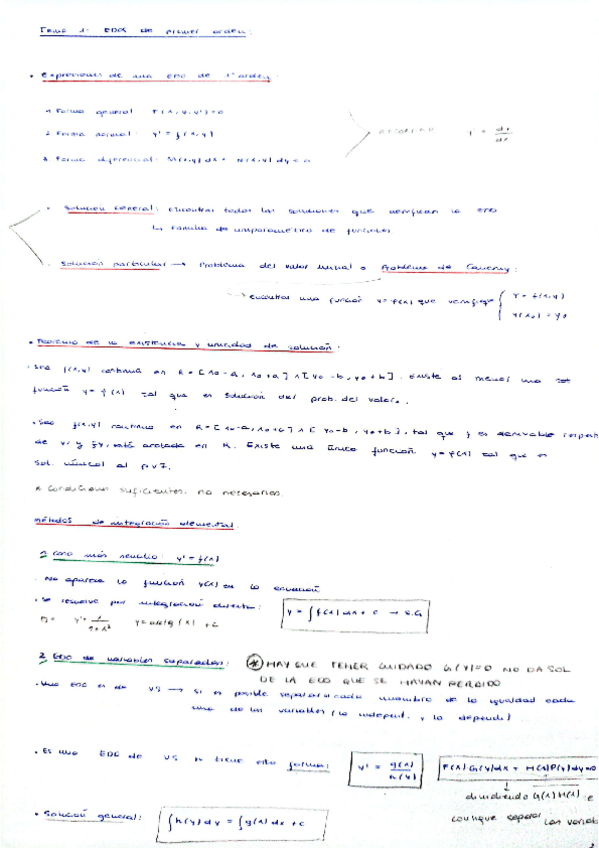 Tema 1: EDOs de primer orden:
• Expresiones de una EDO de 1º orden:
1. Forma general: F(x, y, y') = 0
2. Forma normal: y' = f(x,y)
3. Forma diferencial: M(x,y) dx + N(x,y) dy = 0
• Solución general: encontrar todas las soluciones que verifican la EDO
La familia de uniparamétrico de funciones.
• Solución particular → Problema del valor inicial o Problema de Cauchy:
→ encontrar una función y = f(x) que verifique { y' = f(x,y)
y(x₀) = y₀
• Teorema de la existencia y unicidad de solución:
• Sea f(x,y) continua en R = [x₀-a, x₀+a] x [y₀-b, y₀+b]. Existe al menos una
función y = f(x) tal que es solución del prob. del valor.
• Sea f(x,y) continua en R = [x₀-a, x₀+a] x [y₀-b, y₀+b], tal que f es derivable respecto
de y, y fy está acotada en R. Existe una única función y = f(x) tal que es
sol. del p.v.I.
* Condiciones suficientes, no necesarias.
Métodos de integración elemental.
1. Caso más sencillo: y' = f(x)
• No aparece la función y(x) en la ecuación
• Se resuelve por integración directa: y = ∫ f(x) dx + c → S.G
y = arctg(x) + c
2. EDO de variables separadas: * HAY QUE TENER CUIDADO G(Y)=0 NO DA SOL
DE LA EDO QUE SE HAYAN PERDIDO
• Una EDO es de VS → si es posible separar a cada miembro de la igualdad cada
una de las variables (la independ. y la depende)
• Es una EDO de VS si tiene esta forma: y' = g(x)/h(y) F(x)G(y)dx + H(x)P(y)dy=0
dividiendo G(x)H(x) se
consigue separar las variab
• Solución general: ∫ h(y) dy = ∫ g(x) dx + c